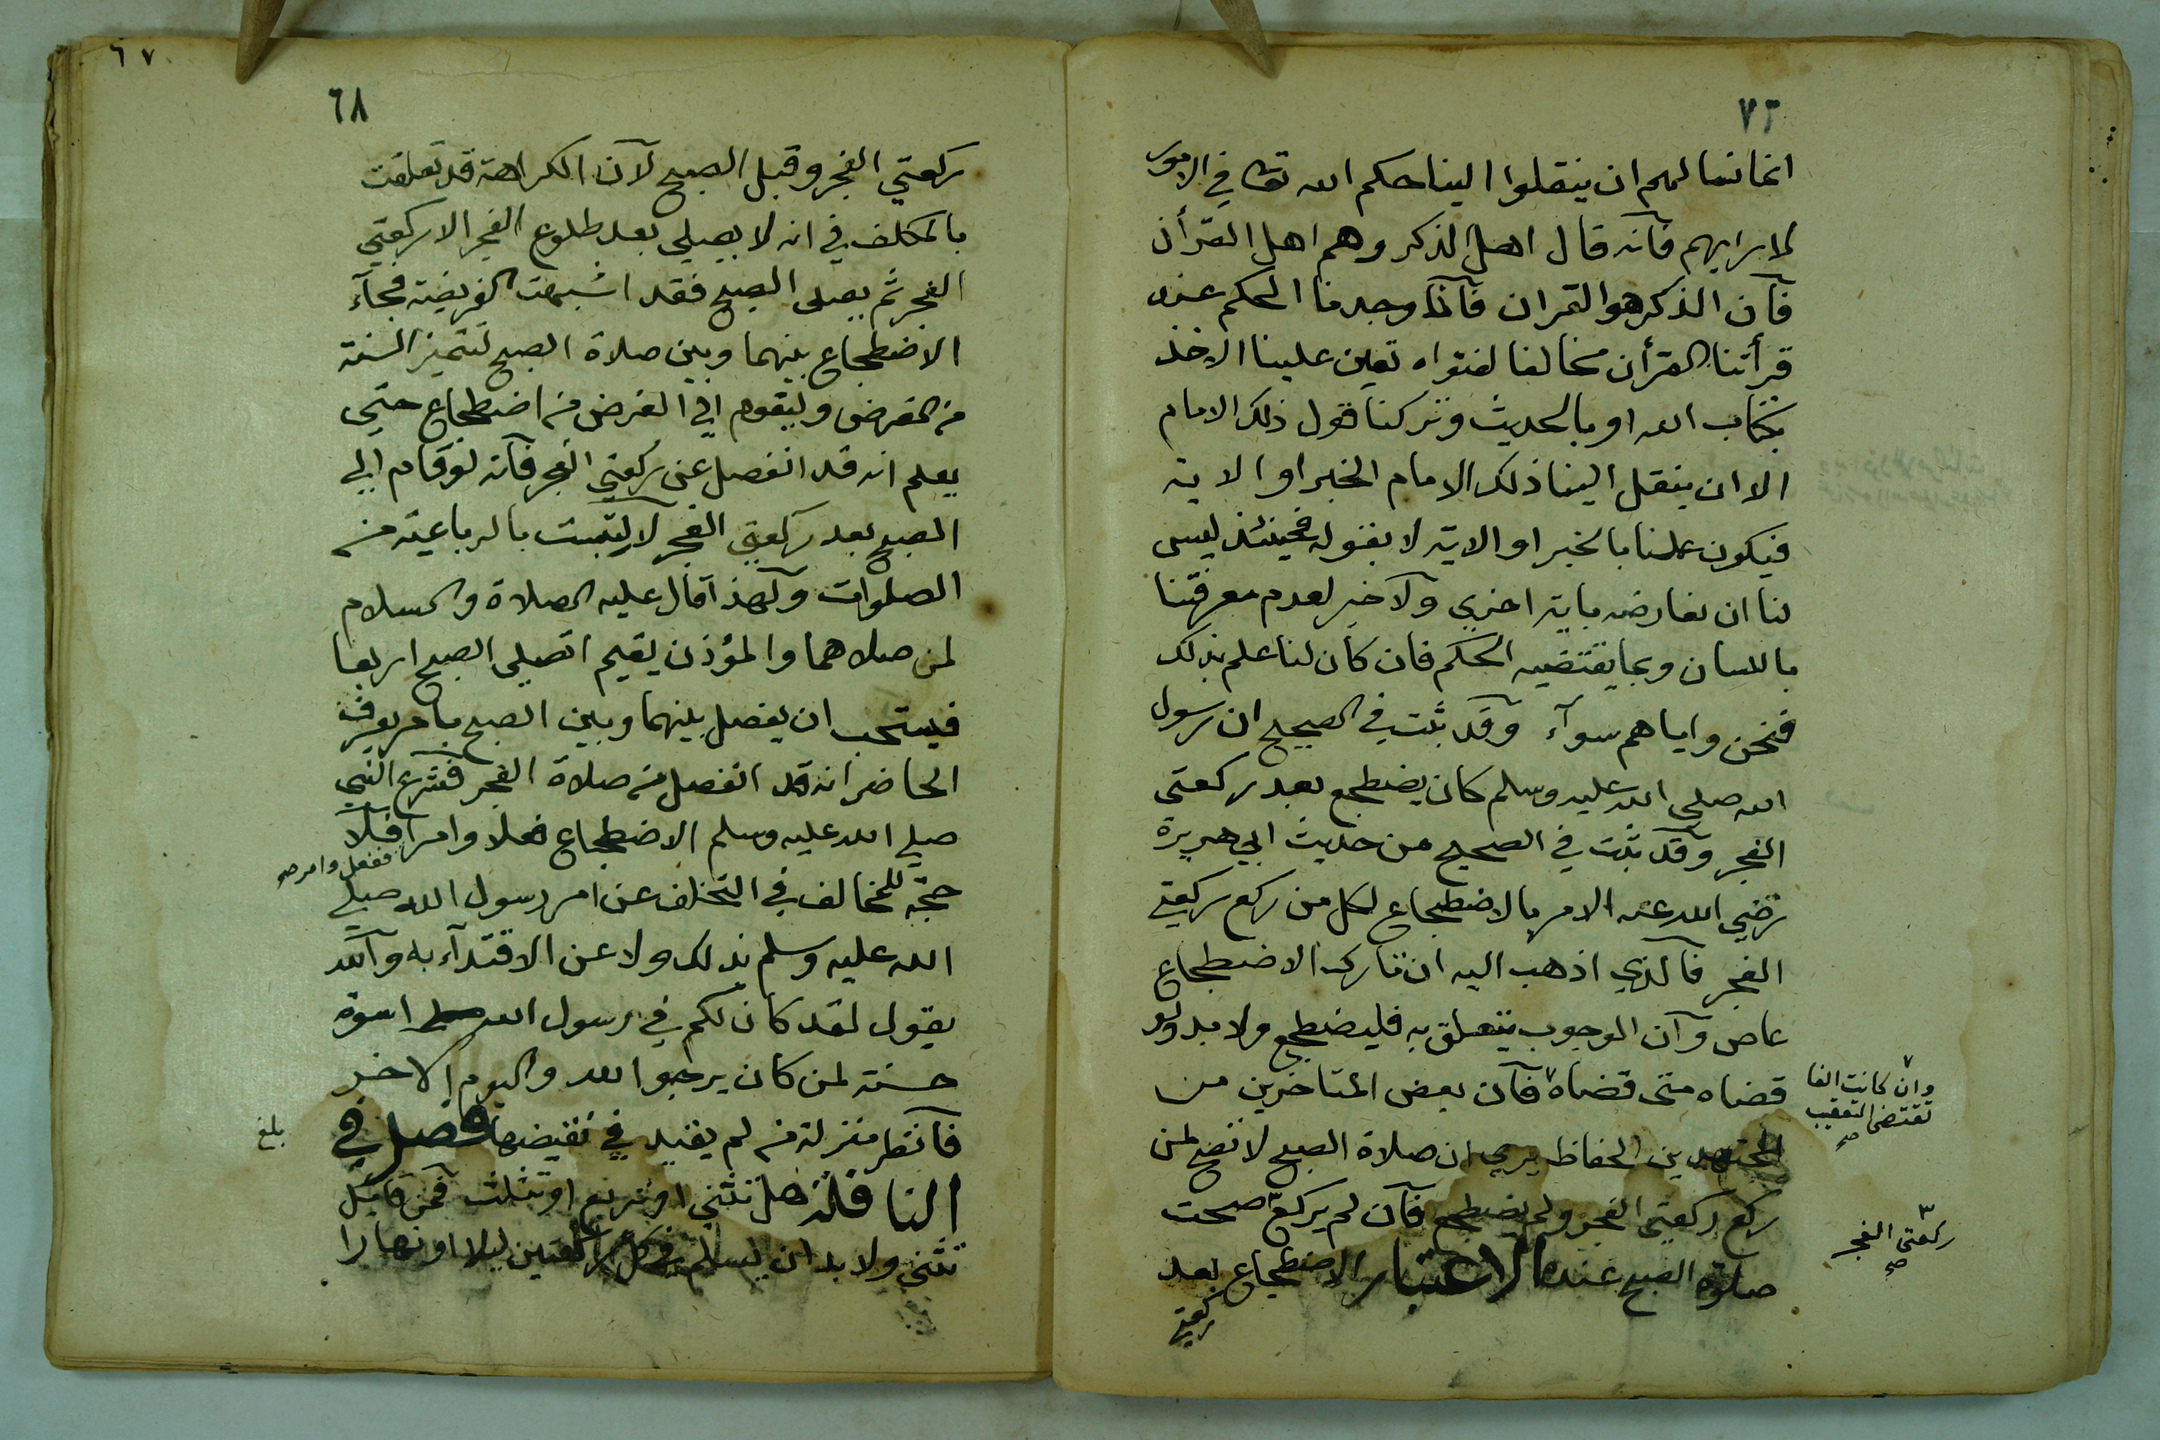 ٧٢
انما نسالهم ان ينقلوا الينا حكم الله تعا في الامور
لا برايهم فانه قال اهل الذكر وهم اهل القرآن
فان الذكر هو القران فاذا وجدنا الحكم عند
قرأتنا القرأن مخالفا لفتواه تعين علينا الاخذ
بكتاب الله او بالحديث وتركنا قول ذلك الامام
الا ان ينقل الينا ذلك الامام الخبر او الاية
فيكون عملنا بالخبر او الاية لا بقوله فحينئذ ليس
لنا ان نعارضه باية اخرى ولا خبر لعدم معرفتنا
باللسان وبما يقتضيه الحكم فان كان لنا علم بذلك
فنحن واياهم سوآء وقد ثبت في الصحيح ان رسول
الله صلى الله عليه وسلم كان يضطجع بعد ركعتى
الفجر وقد ثبت في الصحيح من حديث ابي هريرة
رضي الله عنه الامر بالاضطجاع لكل من ركع ركعتي
الفجر فالذي اذهب اليه ان تارك الاضطجاع
عاص وان الوجوب يتعلق به فليضطجع ولا بد ولو
قضاه متى قضاه فان بعض المتاخرين من
المجتهدين الحفاظ يرى ان صلاة الصبح لا تصح لمن
ركع ركعتي الفجر ولم يضطجع فان لم يركع صحت
صلوة الصبح عنده الاعتبار الاضطجاع بعد
ركعتي
وان كانت الفا
تقتضى التعقيب
صح
ركعتى الفجر
صح
٦٧
٦٨
ركعتي الفجر وقبل الصبح لان الكراهة قد تعلقت
بالمكلف في انه لا يصلي بعد طلوع الفجر الا ركعتي
الفجر ثم يصلى الصبح فقد اشبهت الفريضة فجآء
الاضطجاع بينهما وبين صلاة الصبح لتتميز السنة
من الفرض وليقوم الى الفرض من اضطجاع حتى
يعلم انه قد انفصل عن ركعتي الفجر فانه لو قام الى
الصبح بعد ركعتي الفجر لالتبست بالرباعية من
الصلوات ولهذا قال عليه الصلاة والسلام
لمن صلاهما والمؤذن يقيم اتصلي الصبح اربعا
فيستحب ان يفصل بينهما وبين الصبح بامر يعرف
الحاضر انه قد انفصل من صلاة الفجر فشرع النبي
صلى الله عليه وسلم الاضطجاع فعلا وامرا فلا
ففعل وامر صح
حجة للمخالف في التخلف عن امر رسول الله صلى
الله عليه وسلم بذلك ولا عن الاقتدآء به والله
يقول لقد كان لكم في رسول الله اسوة
حسنة لمن كان يرجوا الله واليوم الاخر
فانظر منزلة من لم يقتد في نقيضها فصل في
بلغ
النافلة هل تثنى او تربع او تثلث فمن قايل
تثنى ولا بد ان يسلم في كل ركعتين ليلا او نهارا